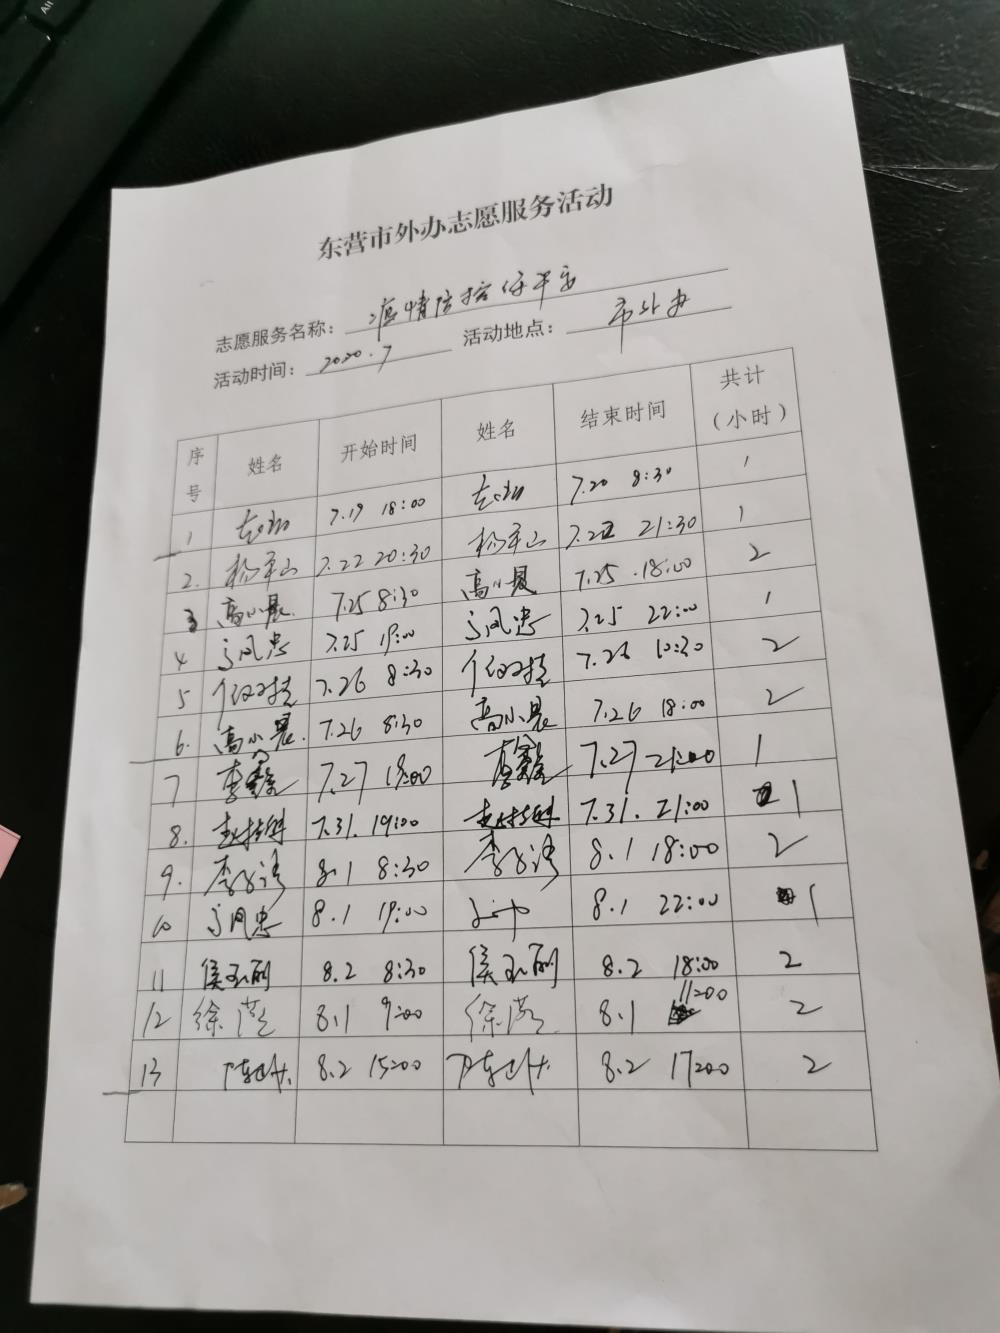 东营市外办志愿服务活动
志愿服务名称：疫情防控保平安
活动时间：2020.7 活动地点：市外办
序号 姓名 开始时间 姓名 结束时间 共计（小时）
1 7.19 18:00 7.20 8:30 1
2. 杨平山 7.22 20:30 杨平山 7.22 21:30 1
3 高小晨 7.25 8:30 高小晨 7.25 18:00 2
4 马风忠 7.25 19:00 马风忠 7.25 22:00 1
5 7.26 8:30 7.26 10:30 2
6. 高小晨 7.26 8:30 高小晨 7.26 18:00 2
7 李鑫 7.27 18:00 李鑫 7.27 21:00 1
8. 7.31. 19:00 7.31. 21:00 1
9. 8.1 8:30 8.1 18:00 2
10 马风忠 8.1 19:00 8.1 22:00 1
11 侯玉丽 8.2 8:30 侯玉丽 8.2 18:00 2
12 徐 8.1 9:00 徐 8.1 11:00 2
13 陈 8.2 15:00 陈 8.2 17:00 2